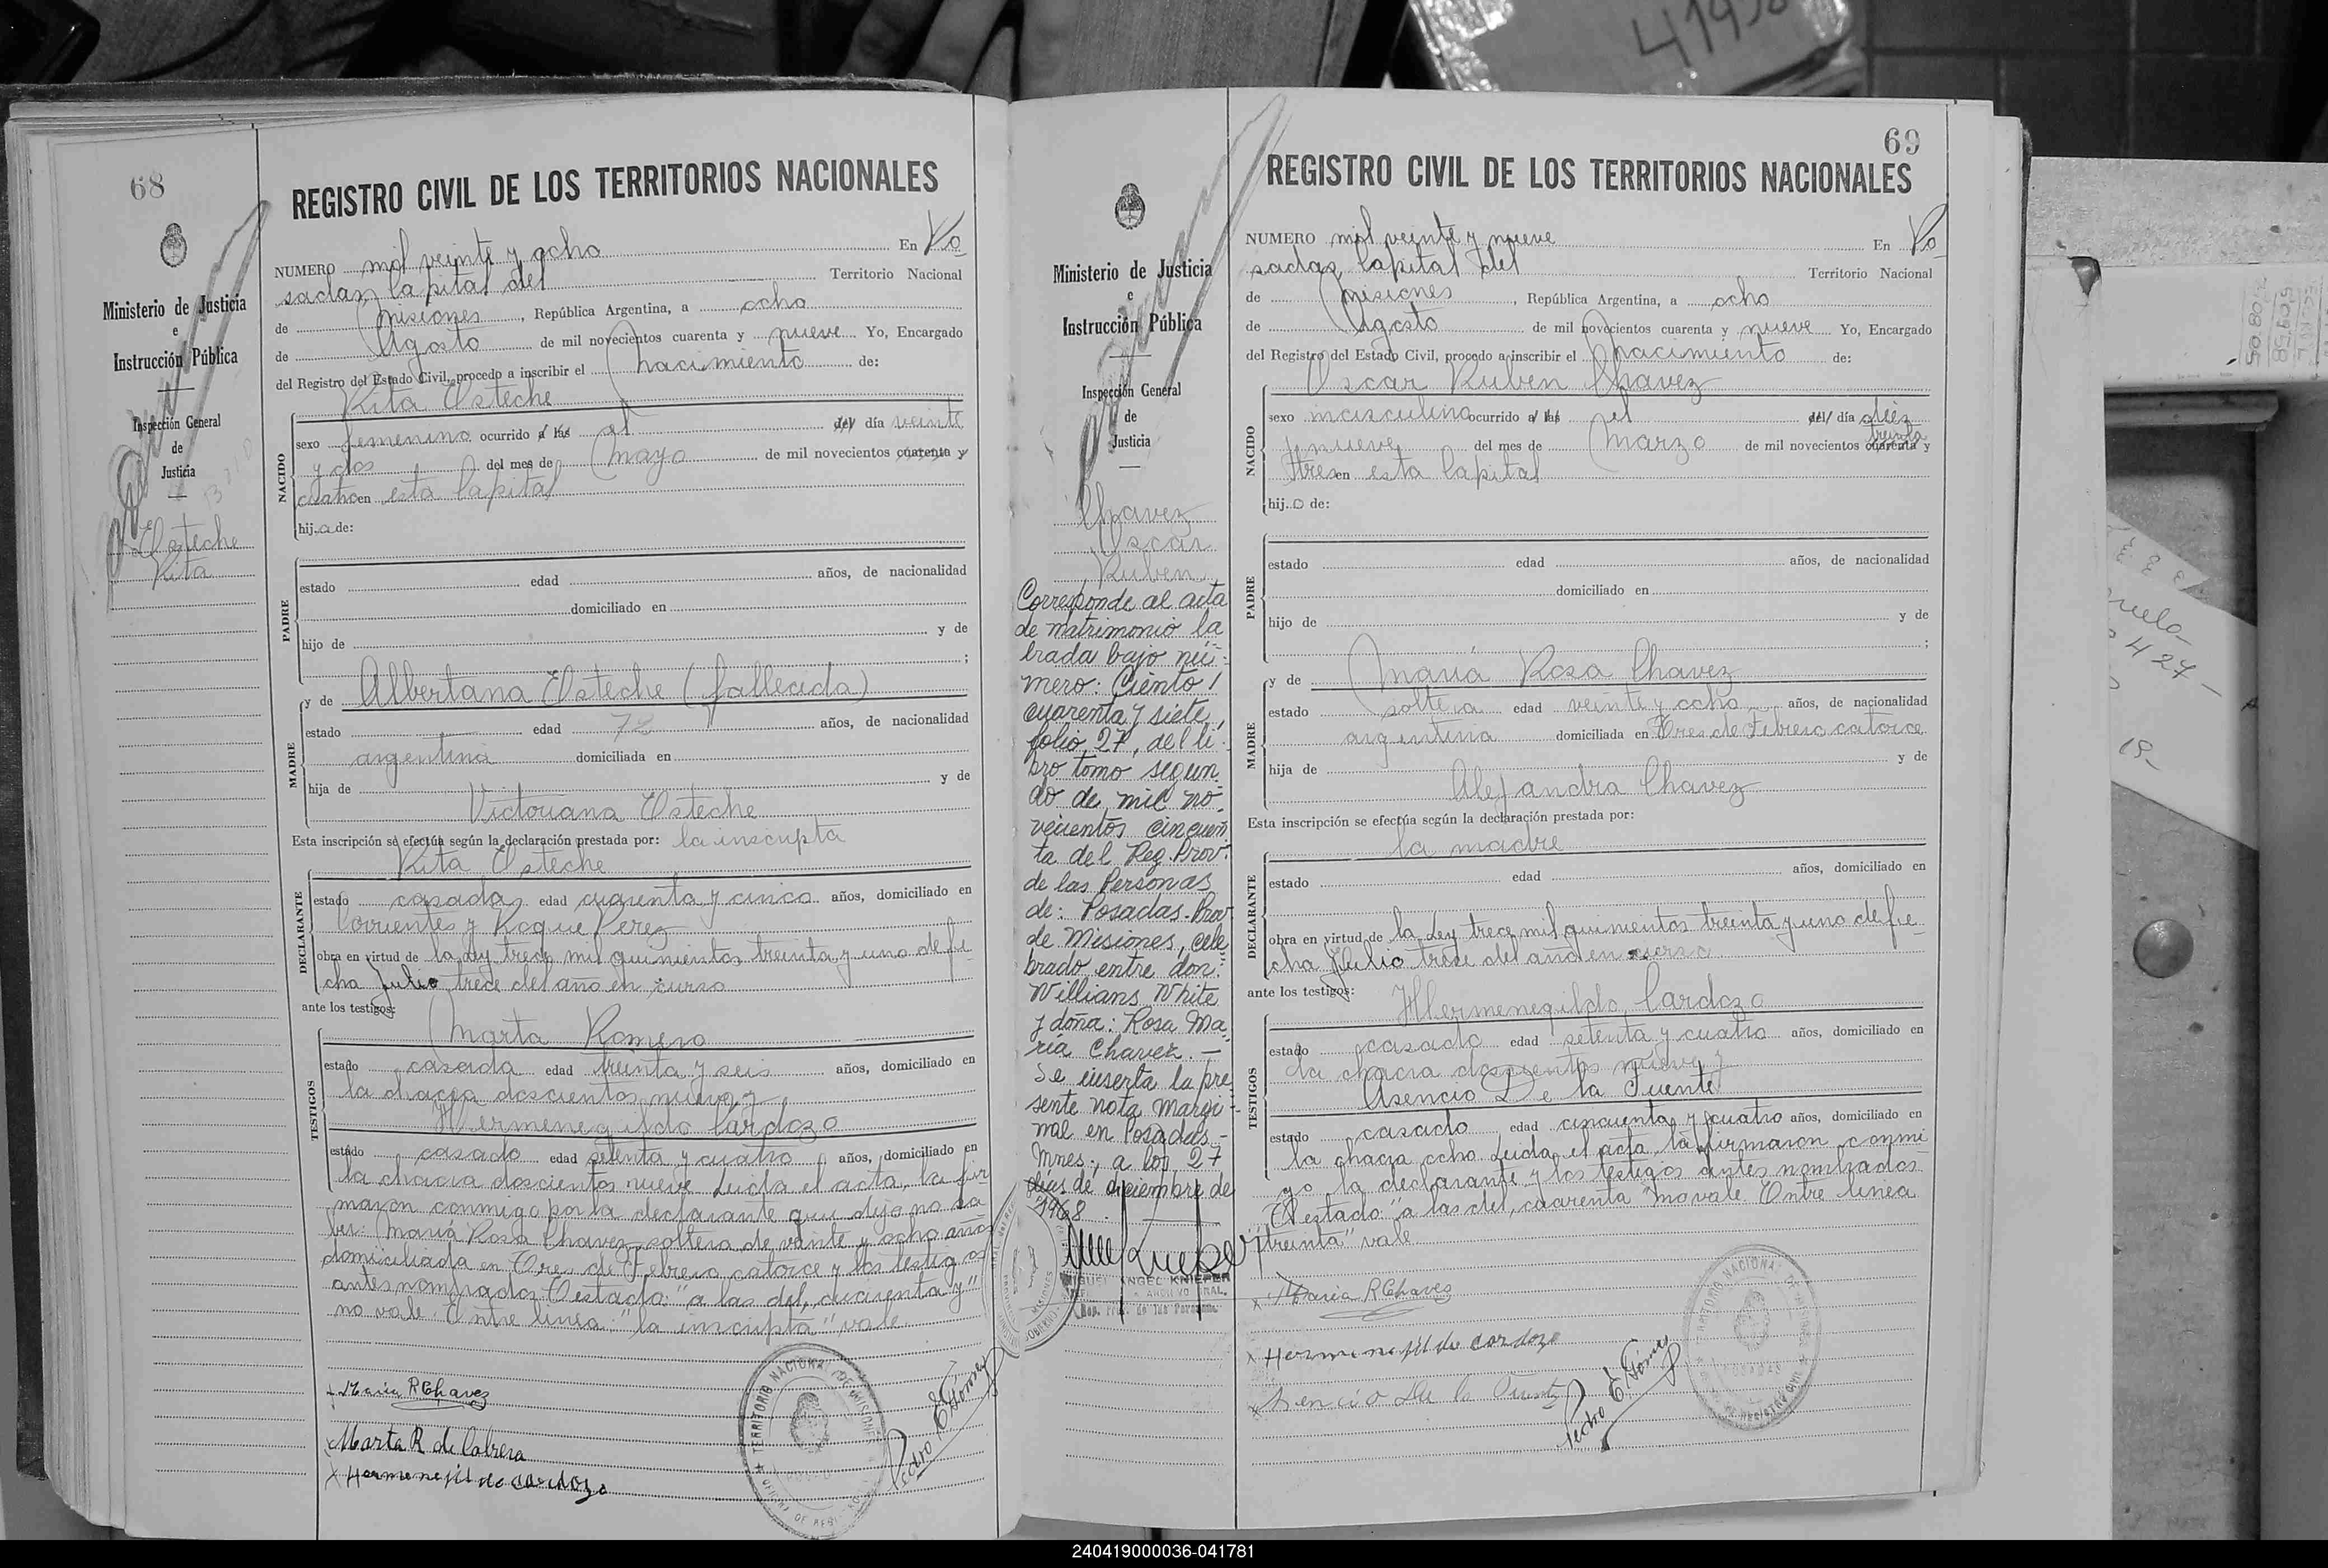 68
Ministerio de Justicia
e
Instrucción Pública
Inspección General
de
Justicia
Esteche
Rita
REGISTRO CIVIL DE LOS TERRITORIOS NACIONALES
NUMERO mil veinte y ocho En Po
sadas, Capital del Territorio Nacional
de Misiones, República Argentina, a ocho
de Agosto de mil novecientos cuarenta y nueve Yo, Encargado
del Registro del Estado Civil, procedo a inscribir el nacimiento de:
Rita Esteche
NACIDO
sexo femenino ocurrido a las el del día veinte
y dos del mes de mayo de mil novecientos cuarenta y
cuatro en esta Capital
hija de:
PADRE
estado edad años, de nacionalidad
domiciliado en
hijo de y de
;
y de Albertana Esteche (fallecida)
MADRE
estado edad 72 años, de nacionalidad
argentina domiciliada en
hija de y de
Victoriana Esteche
Esta inscripción se efectúa según la declaración prestada por: la inscripta
Rita Esteche
DECLARANTE
estado casada edad cuarenta y cinco años, domiciliado en
Corrientes y Roque Perez
obra en virtud de la Ley trece mil quinientos treinta y uno de fe
cha Julio trece del año en curso
ante los testigos:
Marta Romero
TESTIGOS
estado casada edad treinta y seis años, domiciliado en
la chacra doscientos nueve y
Hermenegildo Cardozo
estado casado edad setenta y cuatro años, domiciliado en
la chacra doscientos nueve Leida el acta, la fir
maron conmigo por la declarante que dijo no sa
ber: María Rosa Chavez, soltera de veinte y ocho años
domiciliada en Tres de Febrero catorce y los testigos
antes nombrados Testado: "a las del, cuarenta y"
no vale Entre linea: "la inscripta" vale.
Maria R Chavez
Marta R de Cabrera
Hermenejildo cardozo
Pedro E. Gómez
69
Ministerio de Justicia
e
Instrucción Pública
Inspección General
de
Justicia
Chavez
Oscar
Ruben
Corresponde al acta
de matrimonio la
brada bajo nú-
mero: Ciento
cuarenta y siete,
folio, 27, del li-
bro tomo segun
do de mil no-
vecientos cincuen
ta del Reg. Prov.
de las Personas
de: Posadas-Prov
de Misiones, cele
brado entre don:
Willians White
y doña: Rosa Ma
ria Chavez.—
Se inserta la pre
sente nota margi-
nal en Posadas-
Mnes., a los 27
dias de diciembre de
1968.
MIGUEL ANGEL KNIEPER
REGISTRO CIVIL DE LOS TERRITORIOS NACIONALES
NUMERO mil veinte y nueve En Po
sadas, Capital del Territorio Nacional
de Misiones, República Argentina, a ocho
de Agosto de mil novecientos cuarenta y nueve Yo, Encargado
del Registro del Estado Civil, procedo a inscribir el nacimiento de:
Oscar Ruben Chavez
NACIDO
sexo masculino ocurrido a las el del día diez
y nueve del mes de Marzo de mil novecientos cuarenta y
treinta
tres en esta Capital
hijo de:
PADRE
estado edad años, de nacionalidad
domiciliado en
hijo de y de
;
y de María Rosa Chavez
MADRE
estado soltera edad veinte y ocho años, de nacionalidad
argentina domiciliada en Tres de Febrero catorce
hija de y de
Alejandra Chavez
Esta inscripción se efectúa según la declaración prestada por:
la madre
DECLARANTE
estado edad años, domiciliado en
obra en virtud de la Ley trece mil quinientos treinta y uno de fe-
cha Julio trece del año en curso
ante los testigos:
Hermenegildo Cardozo
TESTIGOS
estado casado edad setenta y cuatro años, domiciliado en
la chacra doscientos nueve y
Asencio De la Fuente
estado casado edad cincuenta y cuatro años, domiciliado en
la chacra ocho Leida el acta, la firmaron conmi
go la declarante y los testigos antes nombrados
Testado: "a las del, cuarenta" no vale Entre linea
"treinta" vale
Maria R Chaves
Hermenejildo cardozo
Asencio De la Fuente
Pedro E. Gómez
240419000036-041781